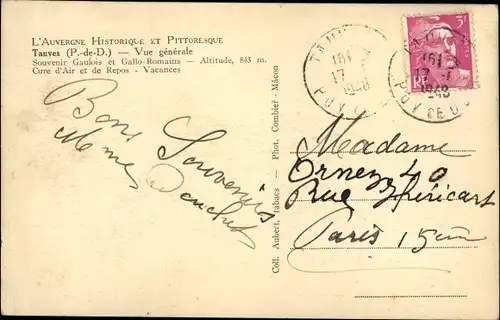 L'Auvergne Historique et Pittoresque
Tauves (P.-de-D.) — Vue générale
Souvenir Gaulois et Gallo-Romains — Altitude, 843 m.
Cure d'Air et de Repos - Vacances
Bons Souvenirs
Coll. Aubert, tabacs — Phot. Combier - Mâcon
16h
17
1948
PUY DE DOME
3F
RF
16h
17
1948
PUY DE DOME
Madame
Ornez 40
Rue Héricart
Paris 15em